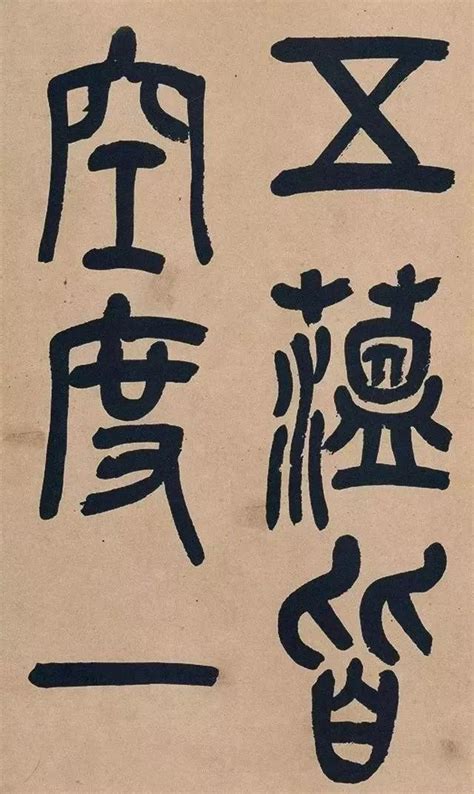 五蘊皆
空度一